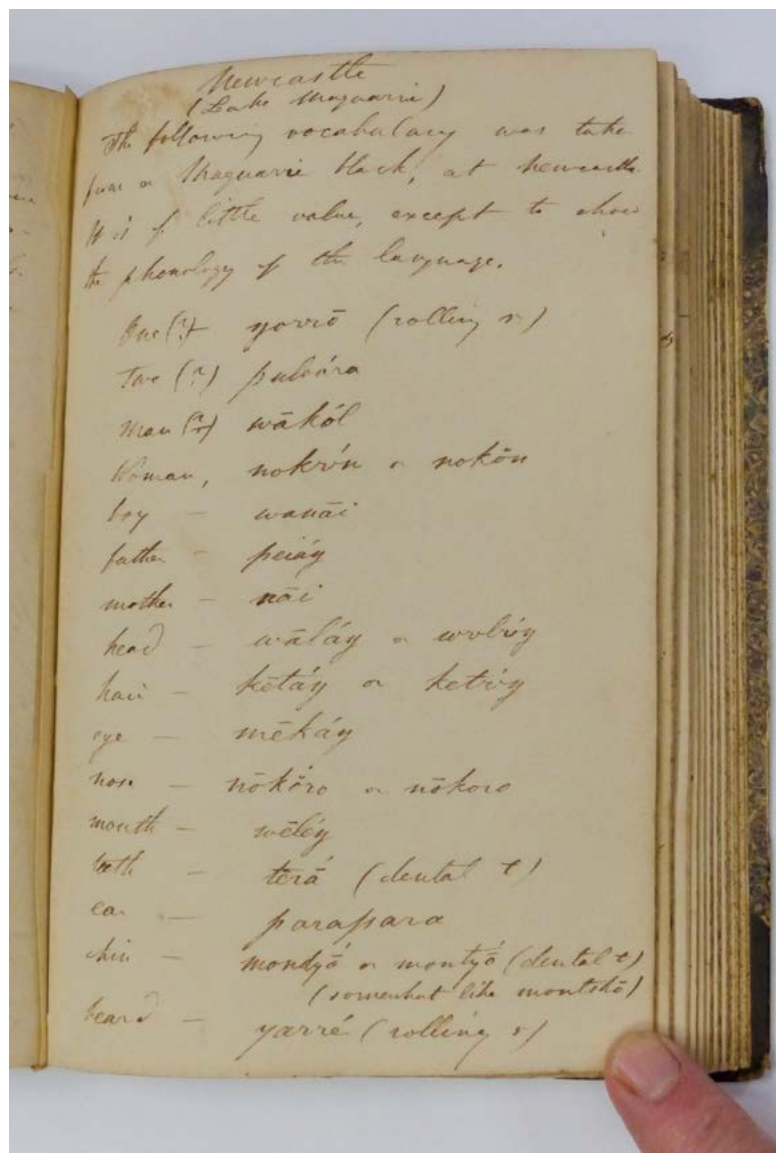 Newcastle
(Lake Maquarrie)
The following vocabulary was take
from a Maquarrie black, at Newcastle
It is of little value, except to show
the phonology of the language.
One (?) yorrō (rolling r)
Two (?) puloára
Man (?) wākól
Woman, nokrón or nokōn
boy — wanāi
father — peiáŋ
mother — nāi
head — wāláŋ or wolróŋ
hair — kētáŋ or ketóŋ
eye — mēkáŋ
nose — nōkōro or nōkoro
mouth — wēléŋ
teeth — terā́ (dental t)
ear — parapara
chin — mondyṓ or montyṓ (dental t)
(somewhat like montshō)
beard — yarré (rolling r)